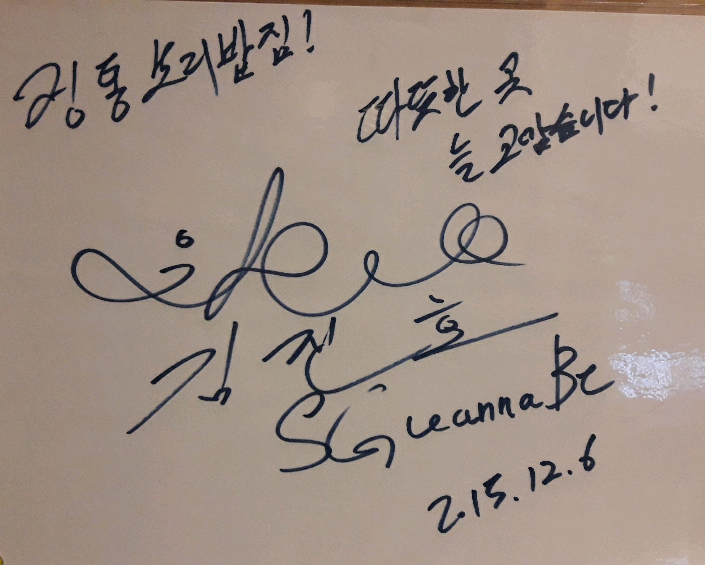 정통 보리밥집!
따뜻한 곳
늘 고맙습니다!
김진호
SG wanna Be
2.15.12.6